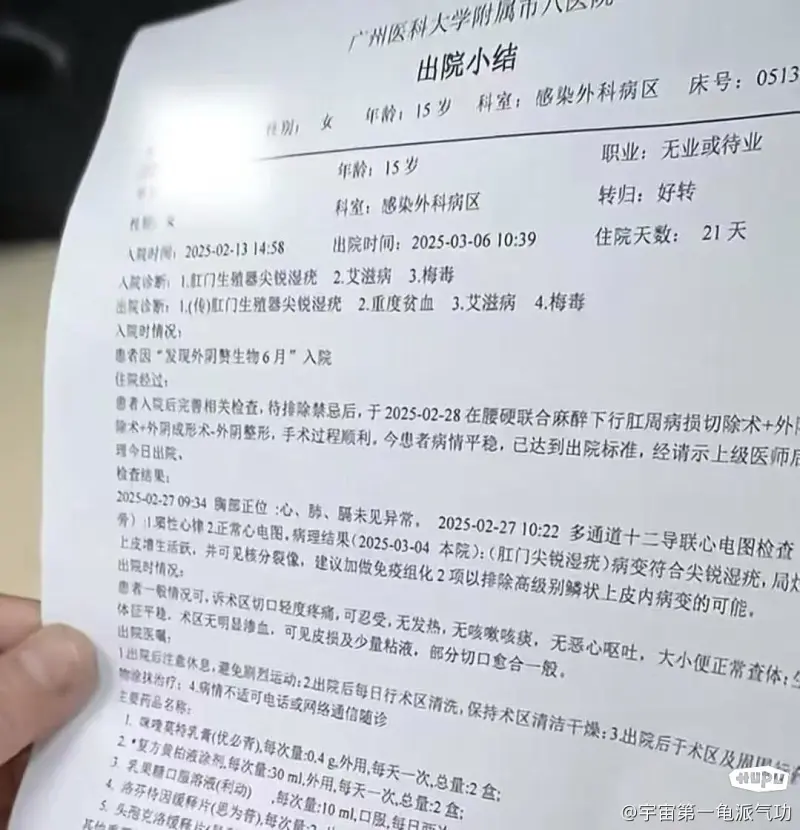 广州医科大学附属市八医院
出院小结
性别: 女 年龄: 15岁 科室: 感染外科病区 床号: 0513
年龄: 15岁 职业: 无业或待业
性别: 女 科室: 感染外科病区 转归: 好转
入院时间: 2025-02-13 14:58 出院时间: 2025-03-06 10:39 住院天数: 21天
入院诊断: 1.肛门生殖器尖锐湿疣 2.艾滋病 3.梅毒
出院诊断: 1.(传)肛门生殖器尖锐湿疣 2.重度贫血 3.艾滋病 4.梅毒
入院时情况:
患者因“发现外阴赘生物6月”入院
住院经过:
患者入院后完善相关检查, 待排除禁忌后, 于2025-02-28在腰硬联合麻醉下行肛周病损切除术+外阴
除术+外阴成形术-外阴整形, 手术过程顺利, 今患者病情平稳, 已达到出院标准, 经请示上级医师后
理今日出院。
检查结果:
2025-02-27 09:34 胸部正位 :心、肺、膈未见异常, 2025-02-27 10:22 多通道十二导联心电图检查
旁) :1.窦性心律2.正常心电图, 病理结果(2025-03-04 本院): (肛门尖锐湿疣)病变符合尖锐湿疣, 局灶
上皮增生活跃, 并可见核分裂像, 建议加做免疫组化2项以排除高级别鳞状上皮内病变的可能。
出院时情况:
患者一般情况可, 诉术区切口轻度疼痛, 可忍受, 无发热, 无咳嗽咳痰, 无恶心呕吐, 大小便正常查体: 生
体征平稳, 术区无明显渗血, 可见皮损及少量粘液, 部分切口愈合一般。
出院医嘱:
1.出院后注意休息, 避免剧烈运动; 2.出院后每日行术区清洗, 保持术区清洁干燥; 3.出院后于术区及周围
物涂抹治疗; 4.病情不适可电话或网络通信随诊
主要药品名称:
1. 咪喹莫特乳膏(优必青),每次量:0.4 g,外用,每天一次,总量:2 盒;
2. *复方黄柏液涂剂,每次量:30 ml,外用,每天一次,总量:2 盒;
3. 乳果糖口服溶液(利动) ,每次量:10 ml,口服,每日两次
4. 洛芬待因缓释片(思为普),每次量:2
5. 头孢克洛缓释片
HUPU
@宇宙第一龟派气功